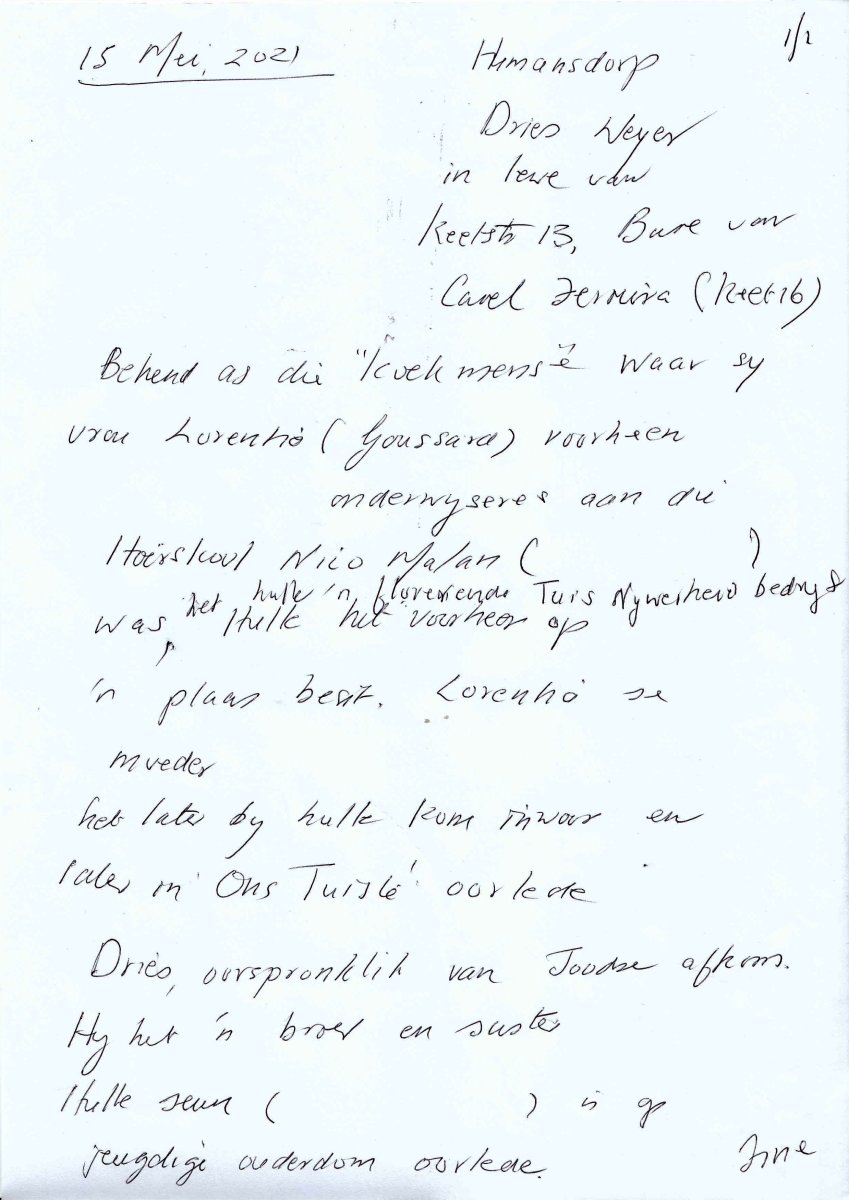 1/2
15 Mei, 2021
Humansdorp
Dries Weyer
in lewe van
Keetstr 13, Bure van
Carel Ferreira (Keet 16)
Bekend as die "koek mense" waar sy
vrou Lorenhó (Goussard) voorheen
onderwyseres aan die
Hoërskool Nico Malan ( )
het hulle 'n floreerende Tuis Nywerheid bedryf
was, Hulle het voorheen op
'n plaas besit. Lorenhó se
moeder
het later by hulle kom inwoon en
later in 'Ons Tuiste' oorlede
Dries, oorspronklik van Joodse afkoms.
Hy het 'n broer en suster
Hulle seun ( ) is op
jeugdige ouderdom oorlede.